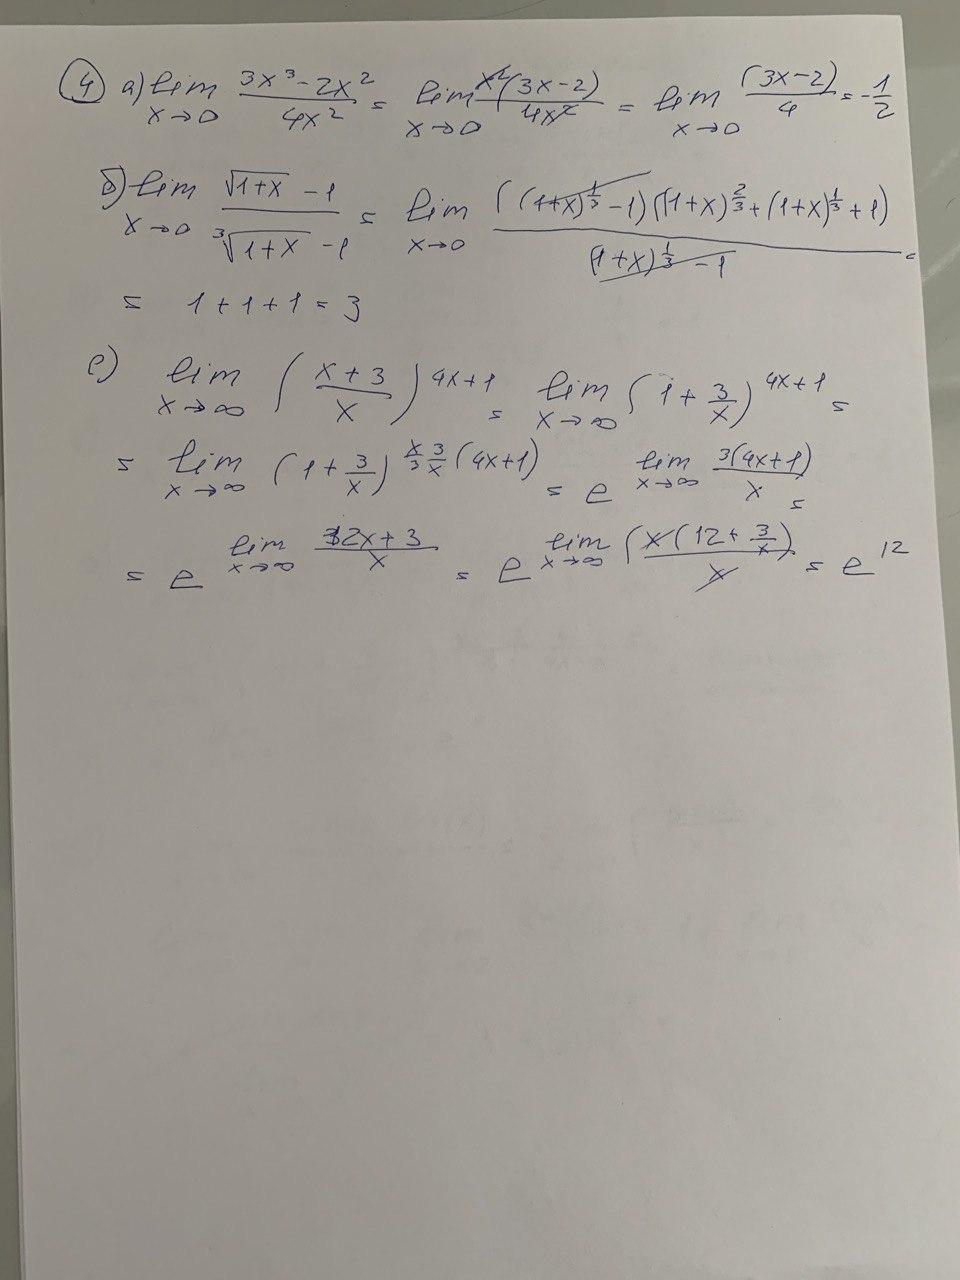 ④ a) lim x→0 (3x³-2x²)/(4x²) = lim x→0 x²(3x-2)/(4x²) = lim x→0 (3x-2)/4 = -1/2
б) lim x→0 (√(1+x) -1)/(∛(1+x) -1) = lim x→0 (((1+x)^(1/3) -1)((1+x)^(2/3)+(1+x)^(1/3)+1))/((1+x)^(1/3) -1) =
= 1+1+1=3
e) lim x→∞ ((x+3)/x)^(4x+1) = lim x→∞ (1+3/x)^(4x+1) =
= lim x→∞ (1+3/x)^(x/3 3/x (4x+1)) = e^(lim x→∞ 3(4x+1)/x) =
= e^(lim x→∞ (12x+3)/x) = e^(lim x→∞ (x(12+3/x)/x) = e^12